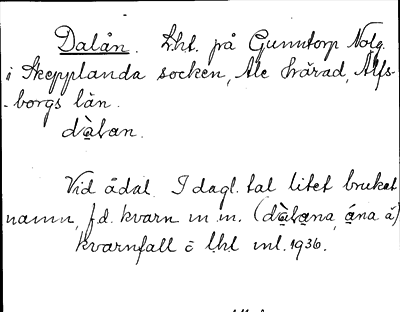 Dalån. Lht. på Gunntorp Nolg.
i Skepplanda socken, Ale härad, Älfs-
-borgs län.
dàlan.
Vid ådal. I dagl. tal litet brukat
namn, f.d. kvarn m.m. (dàlana, ána å)
kvarnfall o Lht ml. 1936.